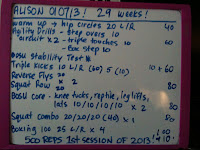 ALISON 010713! 29 WEEKS!
Warm up → hip circles 20 L/R 40
Agility Drills - Step overs 10
circuit x2 - triple touches 10 60
- Box step 10
Bosu Stability Test #
Triple Kicks 10 L/R (60) 5 (10) 10 + 60
Reverse Flys 20
Squat Row 20 x 2 80
Bosu Core - knee tucks, reptile, leg lifts,
lats 10/10/10/10 x 2 80
Squat combo 20/20/20 (40) x 1 80
Boxing 100 25 L/R x 4 100
500 REPS 1st SESSION OF 2013!